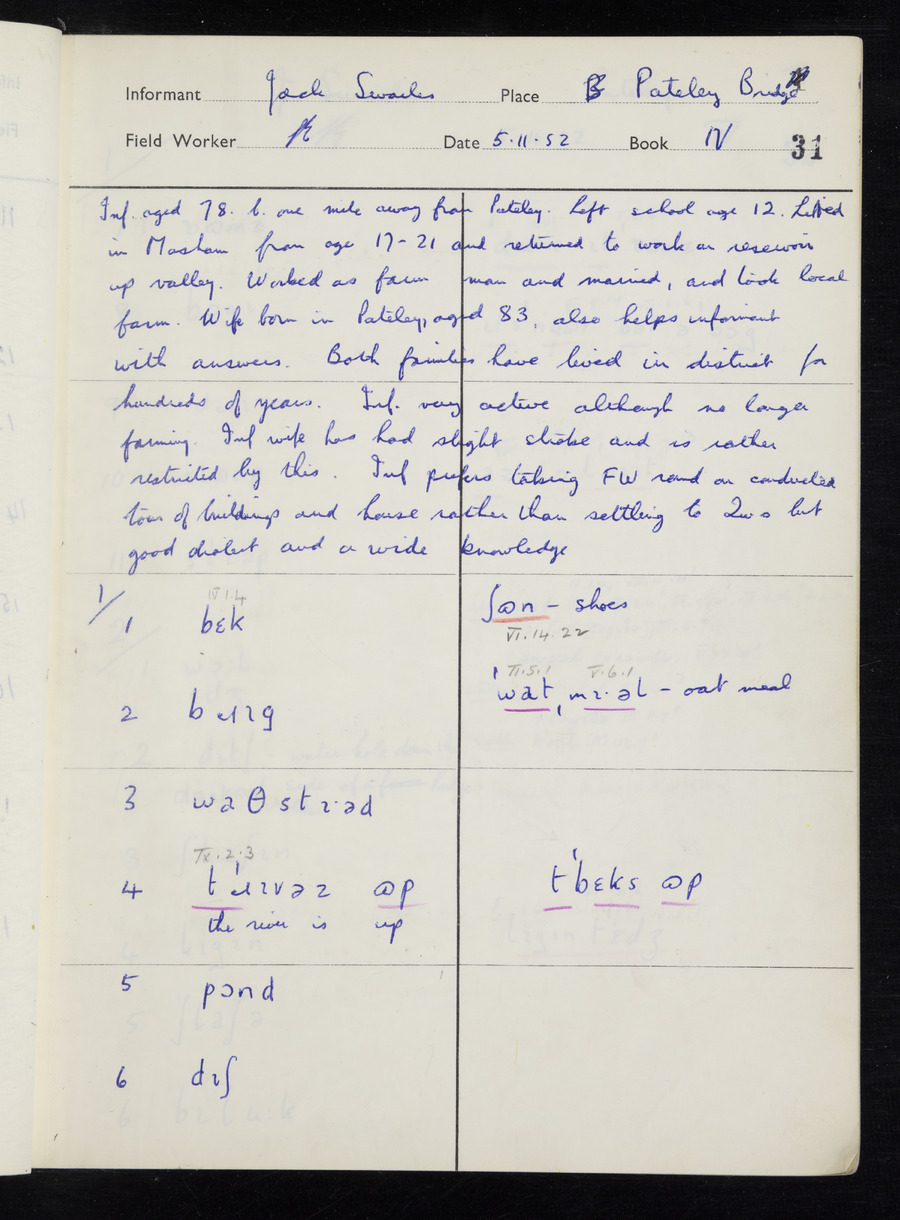 Informant Jack Swailes Place Pateley Bridge
Field Worker Date 5.11.52 Book IV 31
Inf. aged 78. b. one mile away from Pateley. Left school age 12. Lived
in Masham from age 17-21 and returned to work on resevoir
up valley. Worked as farm man and married, and took local
farm. Wife born in Pateley, aged 83, also helps informant
with answers. Both families have lived in district for
hundreds of years. Inf. very active although no longer
farming. Inf wife has had slight stroke and is rather
restricted by this. Inf prefers taking FW round on conducted
tour of buildings and house rather than settling to Qws but
good dialect and a wide knowledge
1/
IV.1.4
1 bɛk
ʃɷn - shoes
VI.14.22
II.5.1 V.6.1
ˈwat ˌmɪ·əl - oat meal
2 bɹɪg
3 waθstɪ·əd
IX.2.3
4 tˈɹɪvəz ɷp
the river is up
tˈbɛks ɷp
5 pɔnd
6 dɪʃ